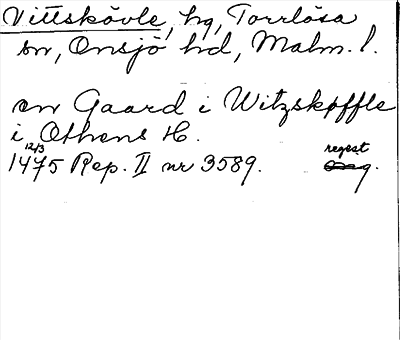 Vittskövle, hg, Torrlösa
sn, Onsjö hd, Malm. l.
en Gaard i Witzskøffle
i Othens H.
12/3
1475 Rep. II nr 3589.
regest